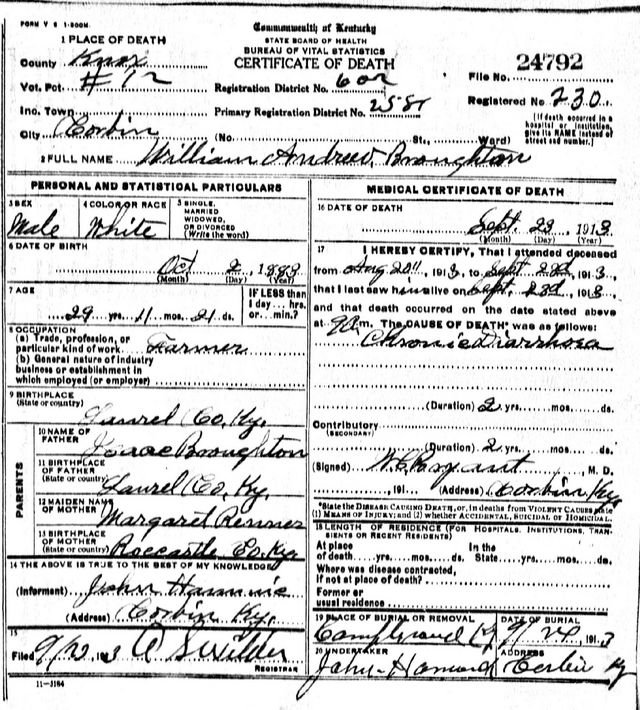 FORM V S 1-500M.
Commonwealth of Kentucky
STATE BOARD OF HEALTH
BUREAU OF VITAL STATISTICS
CERTIFICATE OF DEATH
1 PLACE OF DEATH
County Knox
Vot. Pct. #12
Inc. Town
City Corbin
Registration District No. 602
Primary Registration District No. 2581
(No. St., Ward)
24792
File No.
Registered No. 230
[If death occurred in a hospital or institution, give its NAME instead of street and number.]
2 FULL NAME William Andrew Broughton
PERSONAL AND STATISTICAL PARTICULARS
3 SEX Male
4 COLOR OR RACE White
5 SINGLE, MARRIED WIDOWED, OR DIVORCED (Write the word)
6 DATE OF BIRTH
Oct 2, 1883
(Month) (Day) (Year)
7 AGE
29 yrs. 11 mos. 21 ds.
IF LESS than 1 day... hrs. or... min.?
8 OCCUPATION
(a) Trade, profession, or particular kind of work Farmer
(b) General nature of industry business or establishment in which employed (or employer)
9 BIRTHPLACE
(State or country)
Laurel Co, Ky.
PARENTS
10 NAME OF FATHER Isaac Broughton
11 BIRTHPLACE OF FATHER (State or country) Laurel Co, Ky.
12 MAIDEN NAME OF MOTHER Margaret Renner
13 BIRTHPLACE OF MOTHER (State or country) Roccastle Co. Ky
14 THE ABOVE IS TRUE TO THE BEST OF MY KNOWLEDGE
(Informent) John
(Address) Corbin Ky.
15
Filed 9/23 1913 A S Wilder
REGISTRAR
11-3184
MEDICAL CERTIFICATE OF DEATH
16 DATE OF DEATH
Sept. 23, 1913
(Month) (Day) (Year)
17 I HEREBY CERTIFY, That I attended deceased
from Aug 20", 1913, to Sept. 23d, 1913,
that I last saw him alive on Sept. 23d, 1913
and that death occurred on the date stated above
at 9 a m. The CAUSE OF DEATH* was as follows:
Chronic Diarrhoea
(Duration) 2 yrs. mos. ds.
Contributory
(SECONDARY)
(Duration) 2 yrs. mos. ds.
(Signed) M. D.
, 191 (Address) Corbin Ky
*State the DISEASE CAUSING DEATH, or, in deaths from VIOLENT CAUSES state (1) MEANS OF INJURY; and (2) whether ACCIDENTAL, SUICIDAL OR HOMICIDAL.
18 LENGTH OF RESIDENCE (FOR HOSPITALS, INSTITUTIONS, TRANSIENTS OR RECENT RESIDENTS)
At place of death yrs. mos. ds. In the State yrs. mos. ds.
Where was disease contracted, if not at place of death?
Former or usual residence
19 PLACE OF BURIAL OR REMOVAL
Campground Ky
DATE OF BURIAL
9/24 1913
20 UNDERTAKER
John
ADDRESS
Corbin Ky